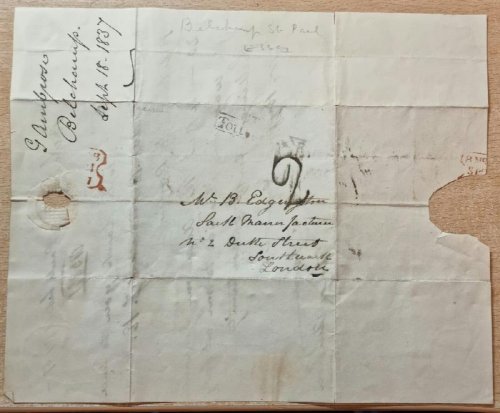 Belchamp St Paul
Essex
G Ambrose
Belchamp.
Sept 18. 1837
No 3
Mr B. Edgington
Sack Manufacturer
No 2 Duke Street
Southwark
London